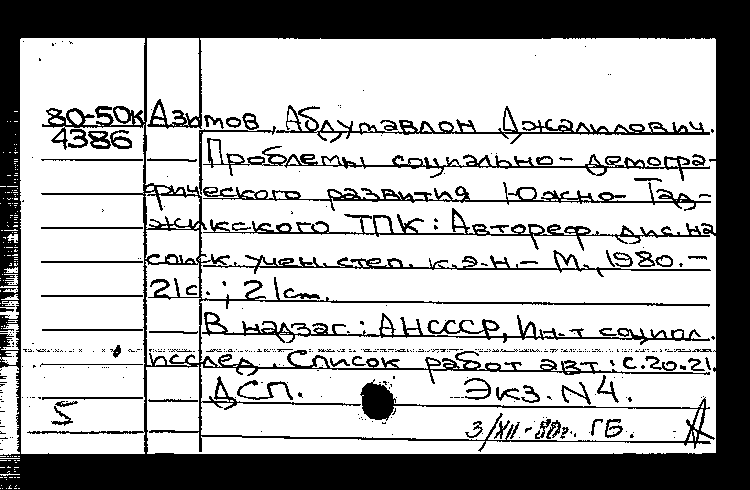 80-50к Азимов, Абдумавлон Джалилович.
4386
Проблемы социально-демогра-
фического развития Южно-Тад-
жикского ТПК: Автореф. дис. на
соиск. учен. степ. к.э.н. - М., 1980. -
21с.; 21см.
В надзаг.: АНСССР, Ин-т социол.
исслед. Список работ авт.: с. 20-21.
ДСП. Экз. N4.
5
3/XII-80г. ГБ.